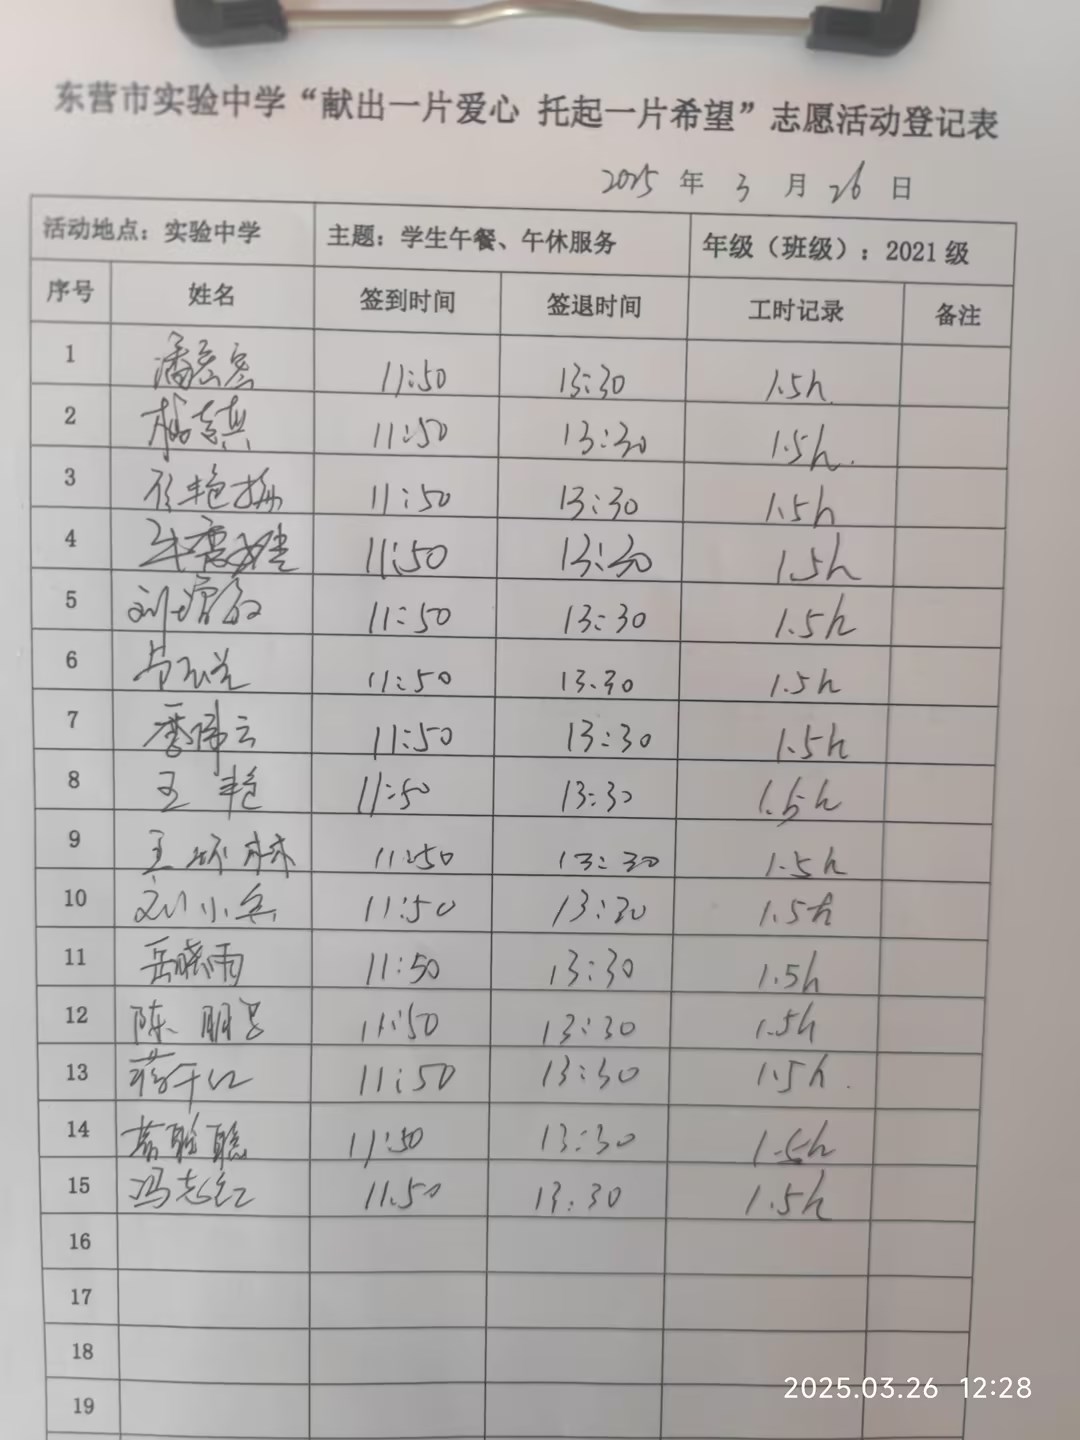 东营市实验中学“献出一片爱心 托起一片希望”志愿活动登记表
2025 年 3 月 26 日
活动地点：实验中学 主题：学生午餐、午休服务 年级（班级）：2021 级
序号 姓名 签到时间 签退时间 工时记录 备注
1 11:50 13:30 1.5h
2 11:50 13:30 1.5h.
3 11:50 13:30 1.5h
4 11:50 13:30 1.5h
5 刘 11:50 13:30 1.5h
6 11:50 13.30 1.5h
7 11:50 13:30 1.5h
8 王艳 11:50 13:30 1.5h
9 王 11:50 13:30 1.5h
10 刘小兵 11:50 13:30 1.5h
11 岳晓雨 11:50 13:30 1.5h
12 陈 11:50 13:30 1.5h
13 11:50 13:30 1.5h.
14 11:50 13:30 1.5h
15 冯志红 11.50 13:30 1.5h
16
17
18
19
2025.03.26 12:28